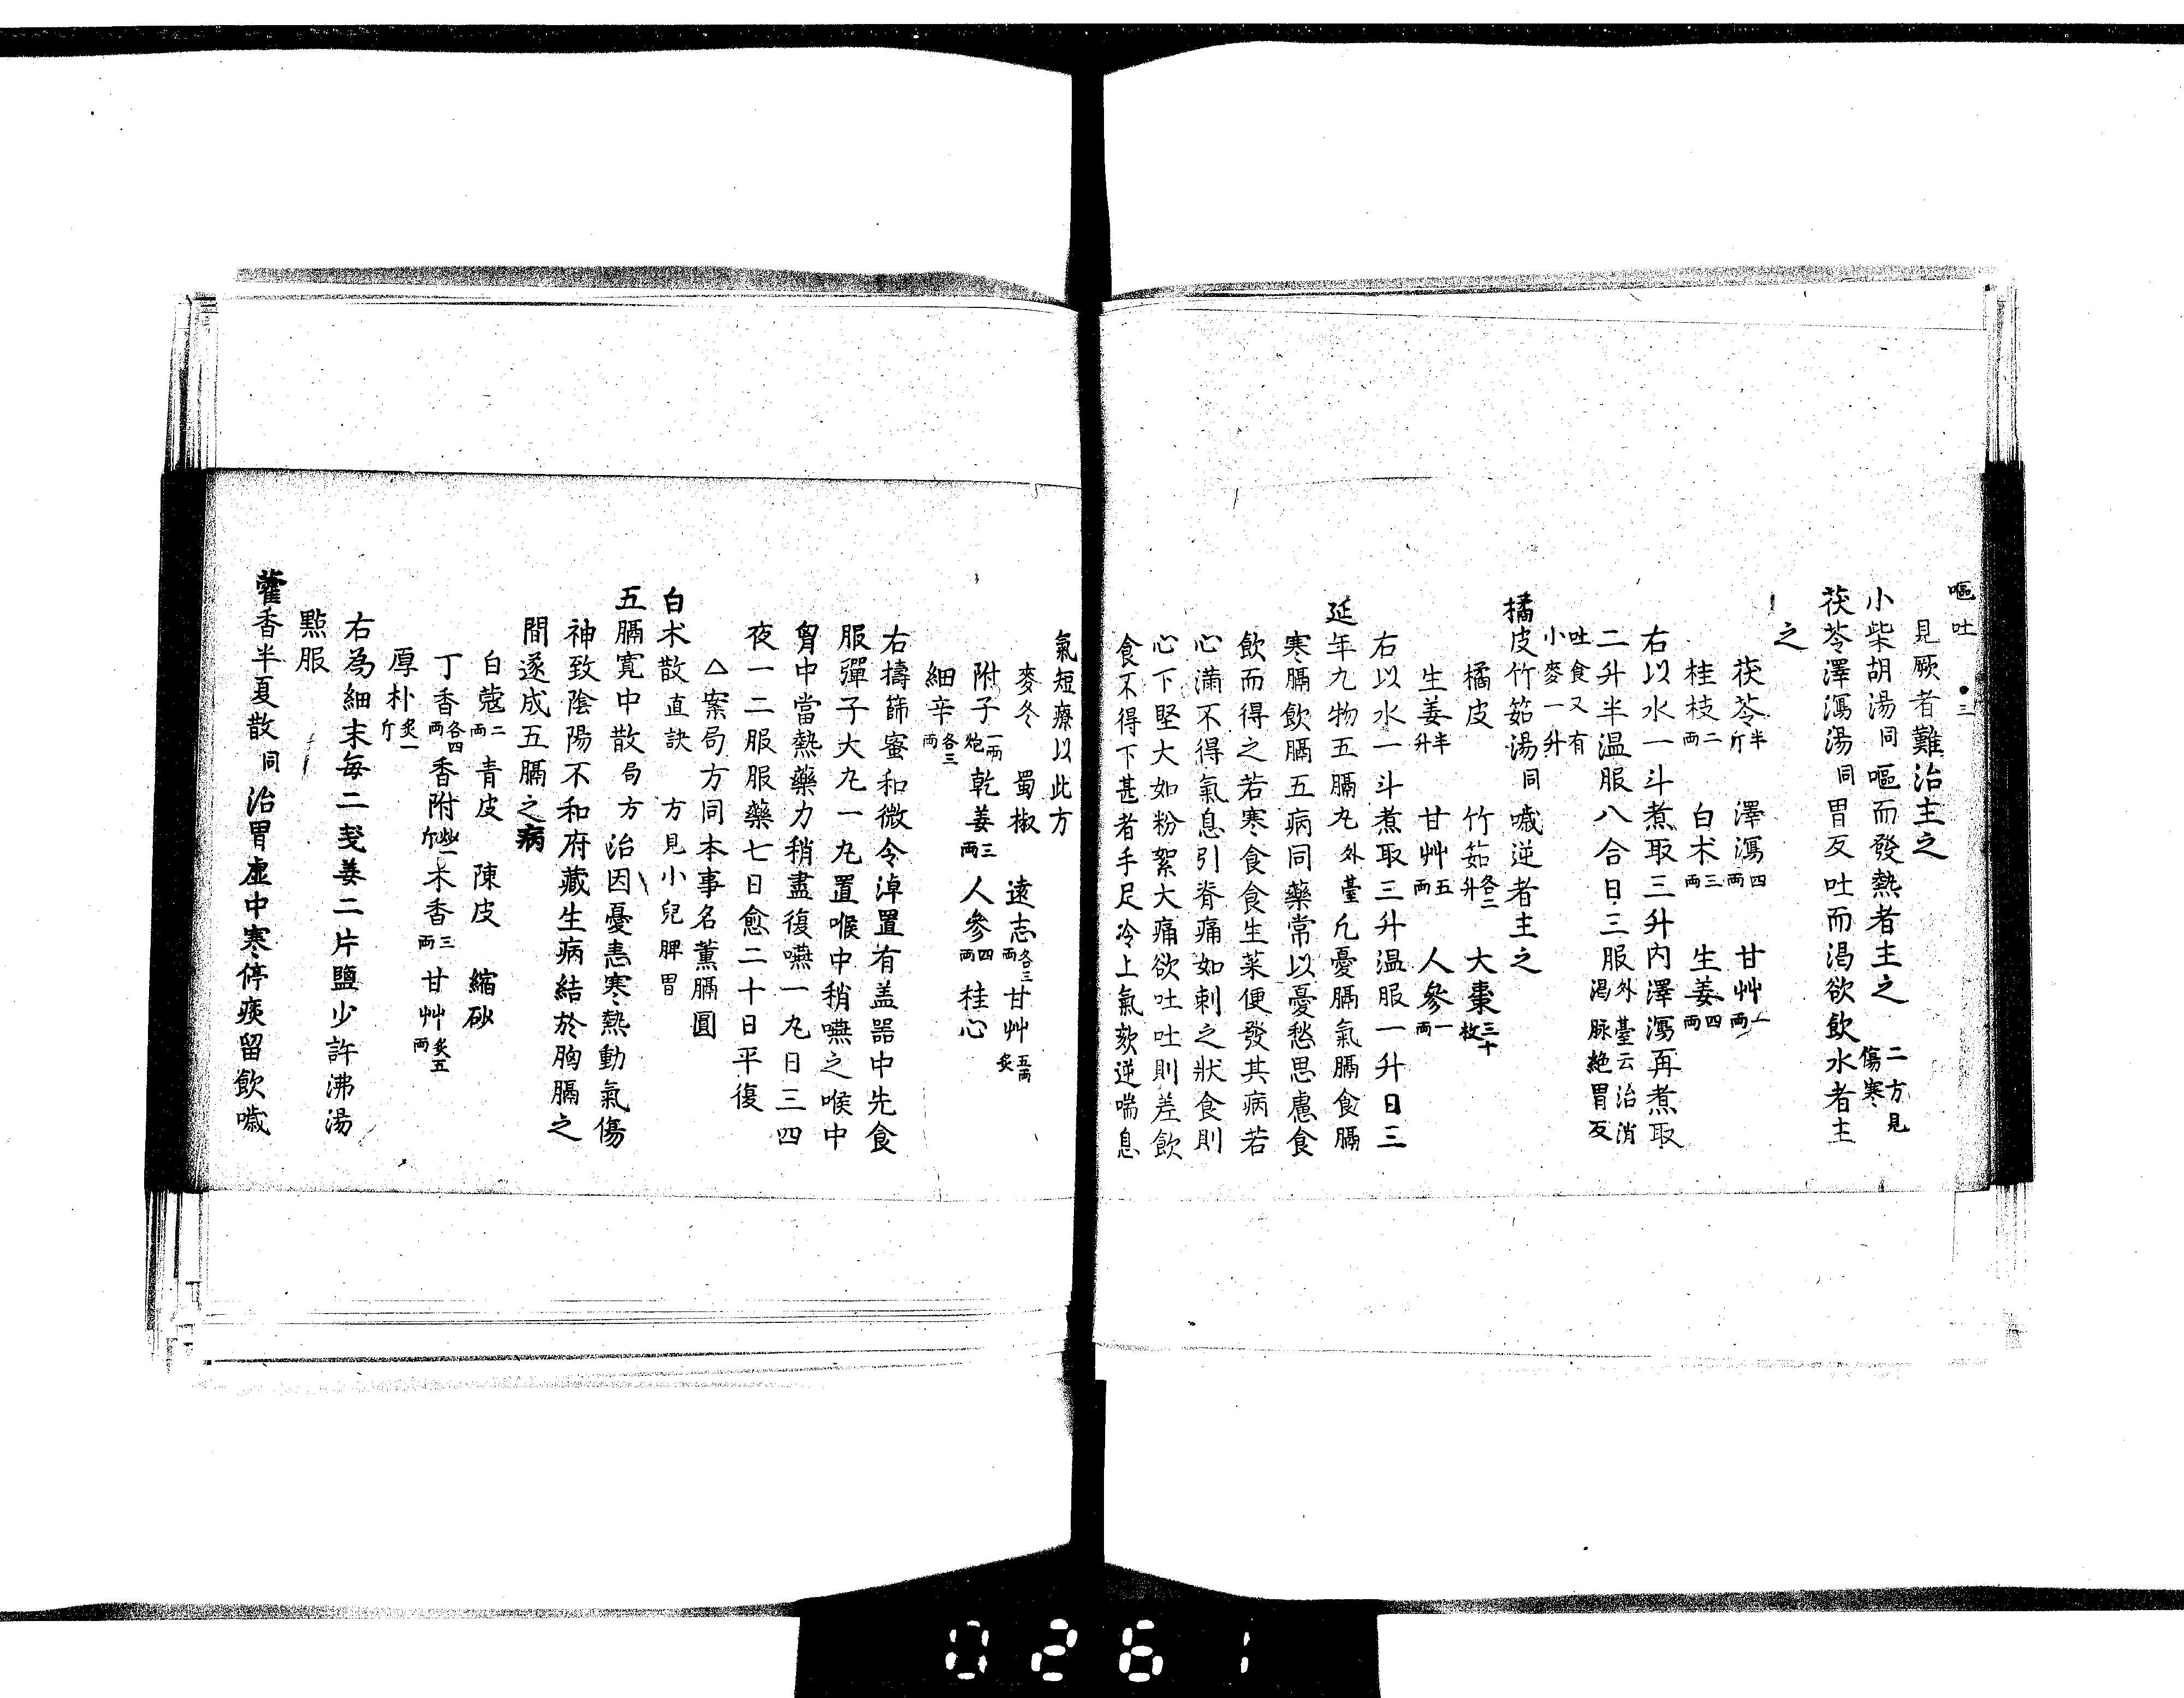 嘔吐 三
見厥者難治主之
小柴胡湯同嘔而發熱者主之 二方見傷寒
茯苓澤瀉湯同胃反吐而渴欲飲水者主
之
茯苓半斤 澤瀉四両 甘艸一両
桂枝二両 白朮三両 生姜四両
右以水一斗煮取三升内澤瀉再煮取
二升半温服八合日三服外臺云治消渴脉絶胃反
吐食又有小麥一升
橘皮竹筎湯同噦逆者主之
橘皮 竹筎各二升 大棗三十枚
生姜半升 甘艸五両 人參一両
右以水一斗煮取三升温服一升日三
延年九物五膈丸外臺凢憂膈氣膈食膈
寒膈飲膈五病同藥常以憂愁思慮食
飲而得之若寒食食生菜便發其病若
心滿不得氣息引脊痛如刺之狀食則
心下堅大如粉絮大痛欲吐吐則差飲
食不得下甚者手足冷上氣欬逆喘息
氣短療以此方
麥冬 蜀椒 遠志各三両 甘艸五両炙
附子一両炮 乾姜三両 人參四両 桂心
細辛各三両
右擣篩蜜和微令淖置有盖器中先食
服彈子大丸一丸置喉中稍嚥之喉中
胷中當熱藥力稍盡復嚥一丸日三四
夜一二服服藥七日愈二十日平復
△案局方同本事名薫膈圓
白朮散直訣 方見小兒脾胃
五膈寛中散局方 治因憂恚寒熱動氣傷
神致陰陽不和府藏生病結於胸膈之
間遂成五膈之病
白蔻二両 青皮 陳皮 縮砂
丁香各四両 香附炒一斤 木香三両 甘艸炙五両
厚朴炙一斤
右為細末每二戔姜二片鹽少許沸湯
點服
藿香半夏散同治胃虛中寒停痰留飲噦
0261